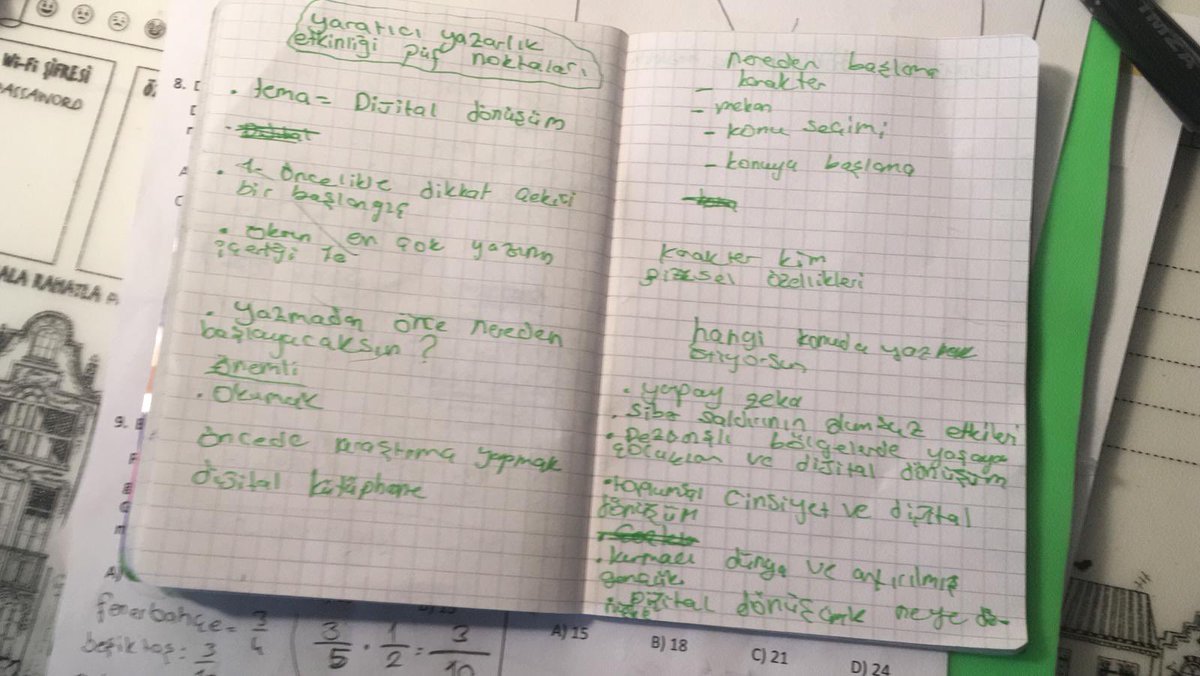 yaratıcı yazarlık
etkinliği püf noktaları
• tema = Dijital dönüşüm
• 1- öncelikle dikkat çekici
bir başlangıç
• okran en çok yazım
içeriği
• yazmadan önce nereden
başlayacaksın?
önemli
• Okumak
öncede araştırma yapmak
dijital kütüphane
nereden başlama
- karakter
- mekan
- konu seçimi
- konuya başlama
karakter kim
fiziksel özellikleri
hangi konuda yazmak
istiyorsun
• yapay zeka
• siber saldırının olumsuz etkileri
• Dezavajlı bölgelerde yaşaya
çocukları ve dijital dönüşüm
• toplumsal cinsiyet ve dijital
dönüşüm
• kurmaca dünya ve
gençlik
• Dijital neye
Wi-Fi ŞİFRESİ
PASSWORD
8.
9.
fenerbahçe = 3/4
beşiktaş: 3/
3/5 · 1/2 = 3/10
A) 15
B) 18
C) 21
D) 24